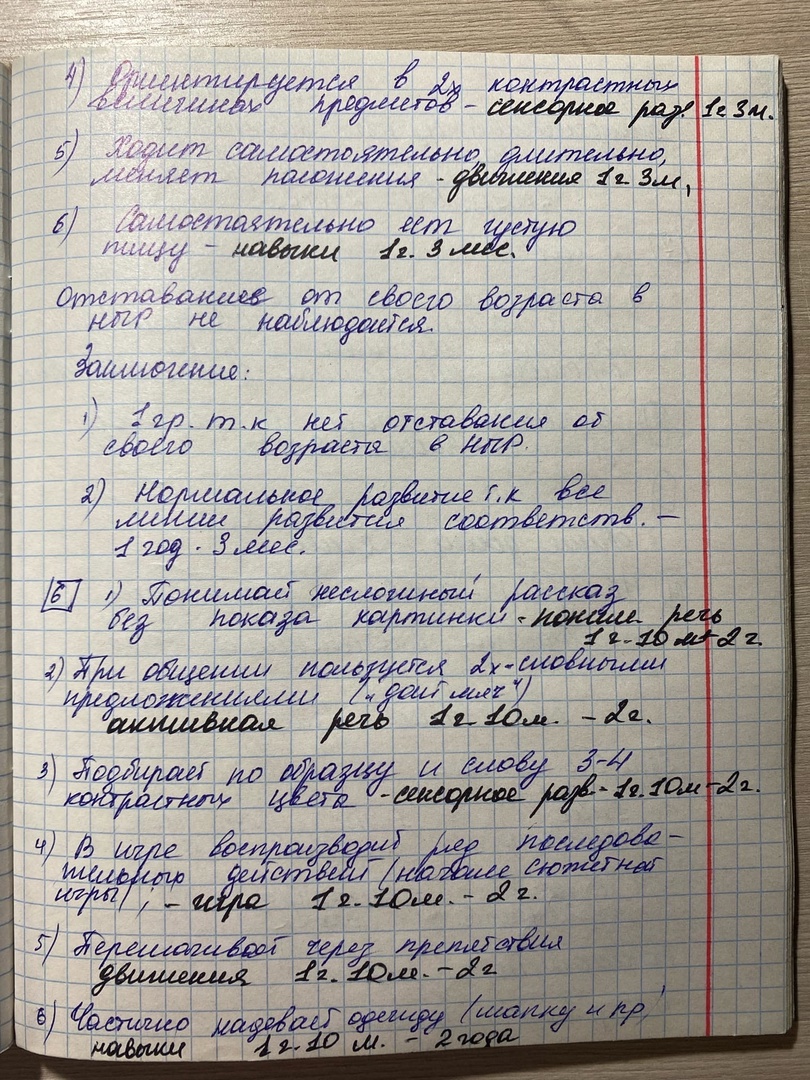 4) Ориентируется в 2х контрастных
величинах предметов - сенсорное раз. 1г 3м.
5) Ходит самостоятельно, длительно,
меняет положения - движения 1г 3м,
6) Самостоятельно ест густую
пищу - навыки 1г. 3 мес.
Отставание от своего возраста в
НПР не наблюдается.
Заключение:
1) 1 гр. т.к нет отставания от
своего возраста в НПР.
2) Нормальное развитие т.к все
линии развития соответств. -
1 год. 3 мес.
6 1) Понимает несложный рассказ
без показа картинки - поним. речь
1г. 10 м - 2 г.
2) При общении пользуется 2х-словными
предложениями („дай мяч")
активная речь 1г. 10м. - 2г.
3) Подбирает по образцу и слову 3-4
контрастных цвета - сенсорное разв. - 1г. 10м - 2г.
4) В игре воспроизводит ряд последова-
тельных действий (начало сюжетной
игры); - игра 1г. 10м. - 2г.
5) Перешагивает через препятствия
движения 1г. 10м. - 2г
6) Частично надевает одежду (шапку и пр)
навыки 1г. 10 м. - 2 года